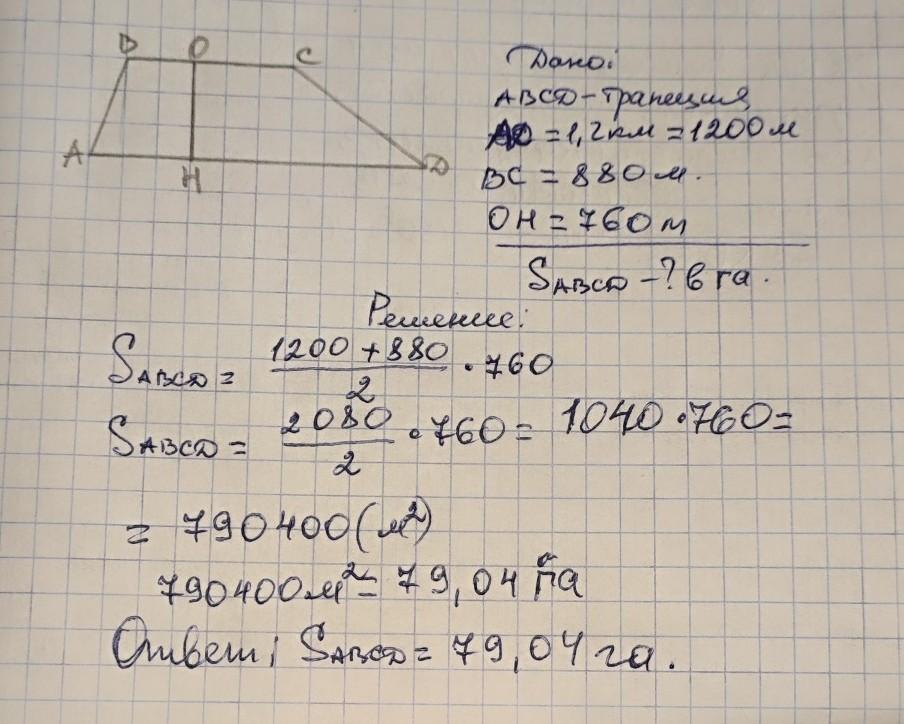 B O C
A H D
Дано:
ABCD - трапеция
AD = 1,2 км = 1200 м
BC = 880 м.
OH = 760 м
SABCD - ? в га.
Решение:
SABCD = (1200 + 880)/2 · 760
SABCD = 2080/2 · 760 = 1040 · 760 =
= 790400 (м²)
790400 м² = 79,04 га
Ответ: SABCD = 79,04 га.